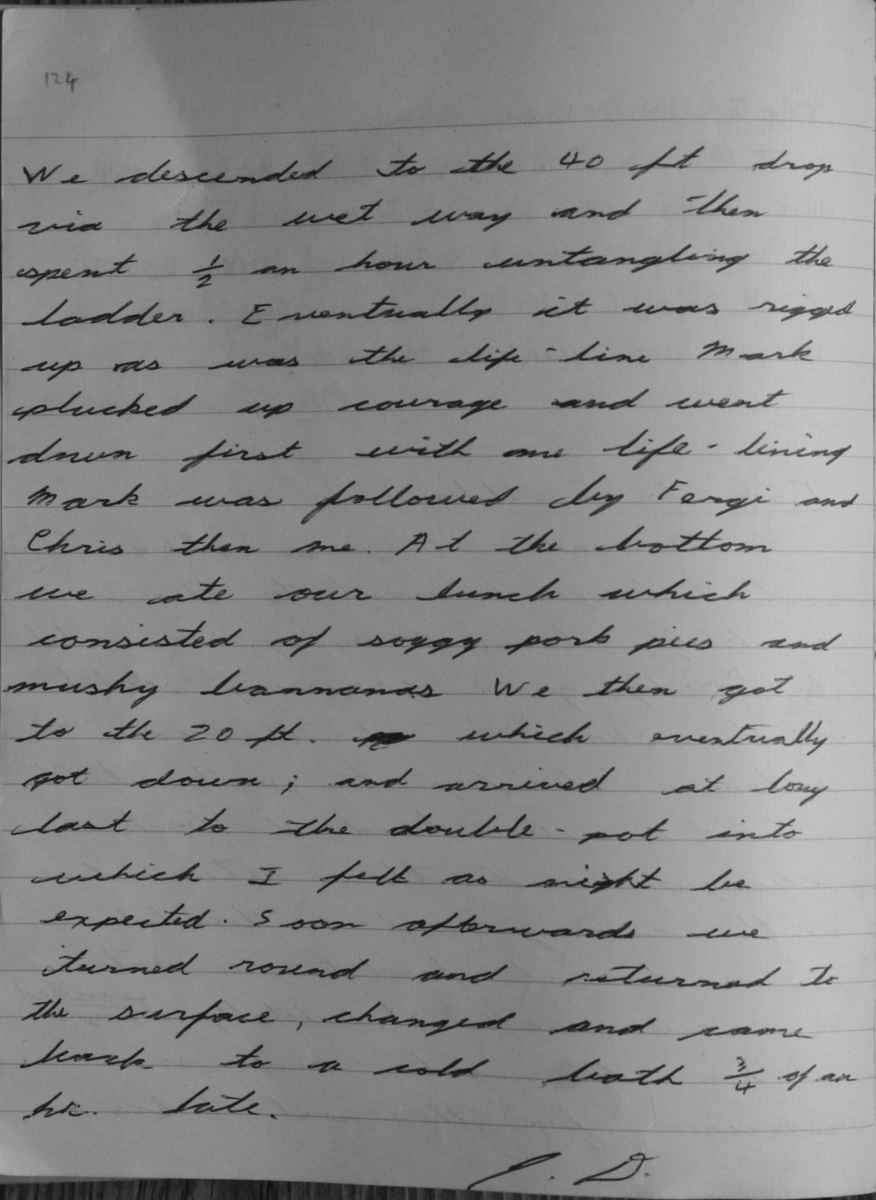 124
We descended to the 40 ft drop
via the wet way and then
spent ½ an hour untangling the
ladder. Eventually it was rigged
up as was the life-line Mark
plucked up courage and went
down first with me life-lining
Mark was followed by Fergi and
Chris then me. At the bottom
we ate our lunch which
consisted of soggy pork pies and
mushy bannanas We then got
to the 20 ft. which eventually
got down; and arrived at long
last to the double-pot into
which I fell as might be
expected. Soon afterwards we
turned round and returned to
the surface, changed and came
back to a cold bath ¾ of an
hr. late.
D.